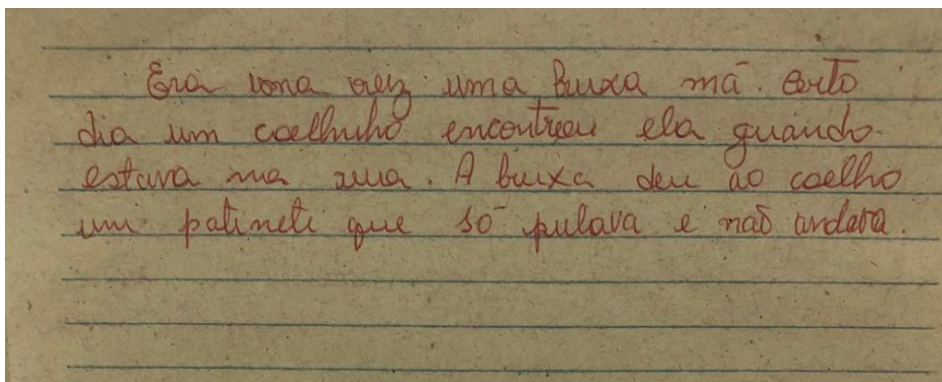 Era uma vez uma buxa má. Certo
dia um coelhinho encontrou ela quando
estava na rua. A buxa deu ao coelho
um patinete que só pulava e não andava.